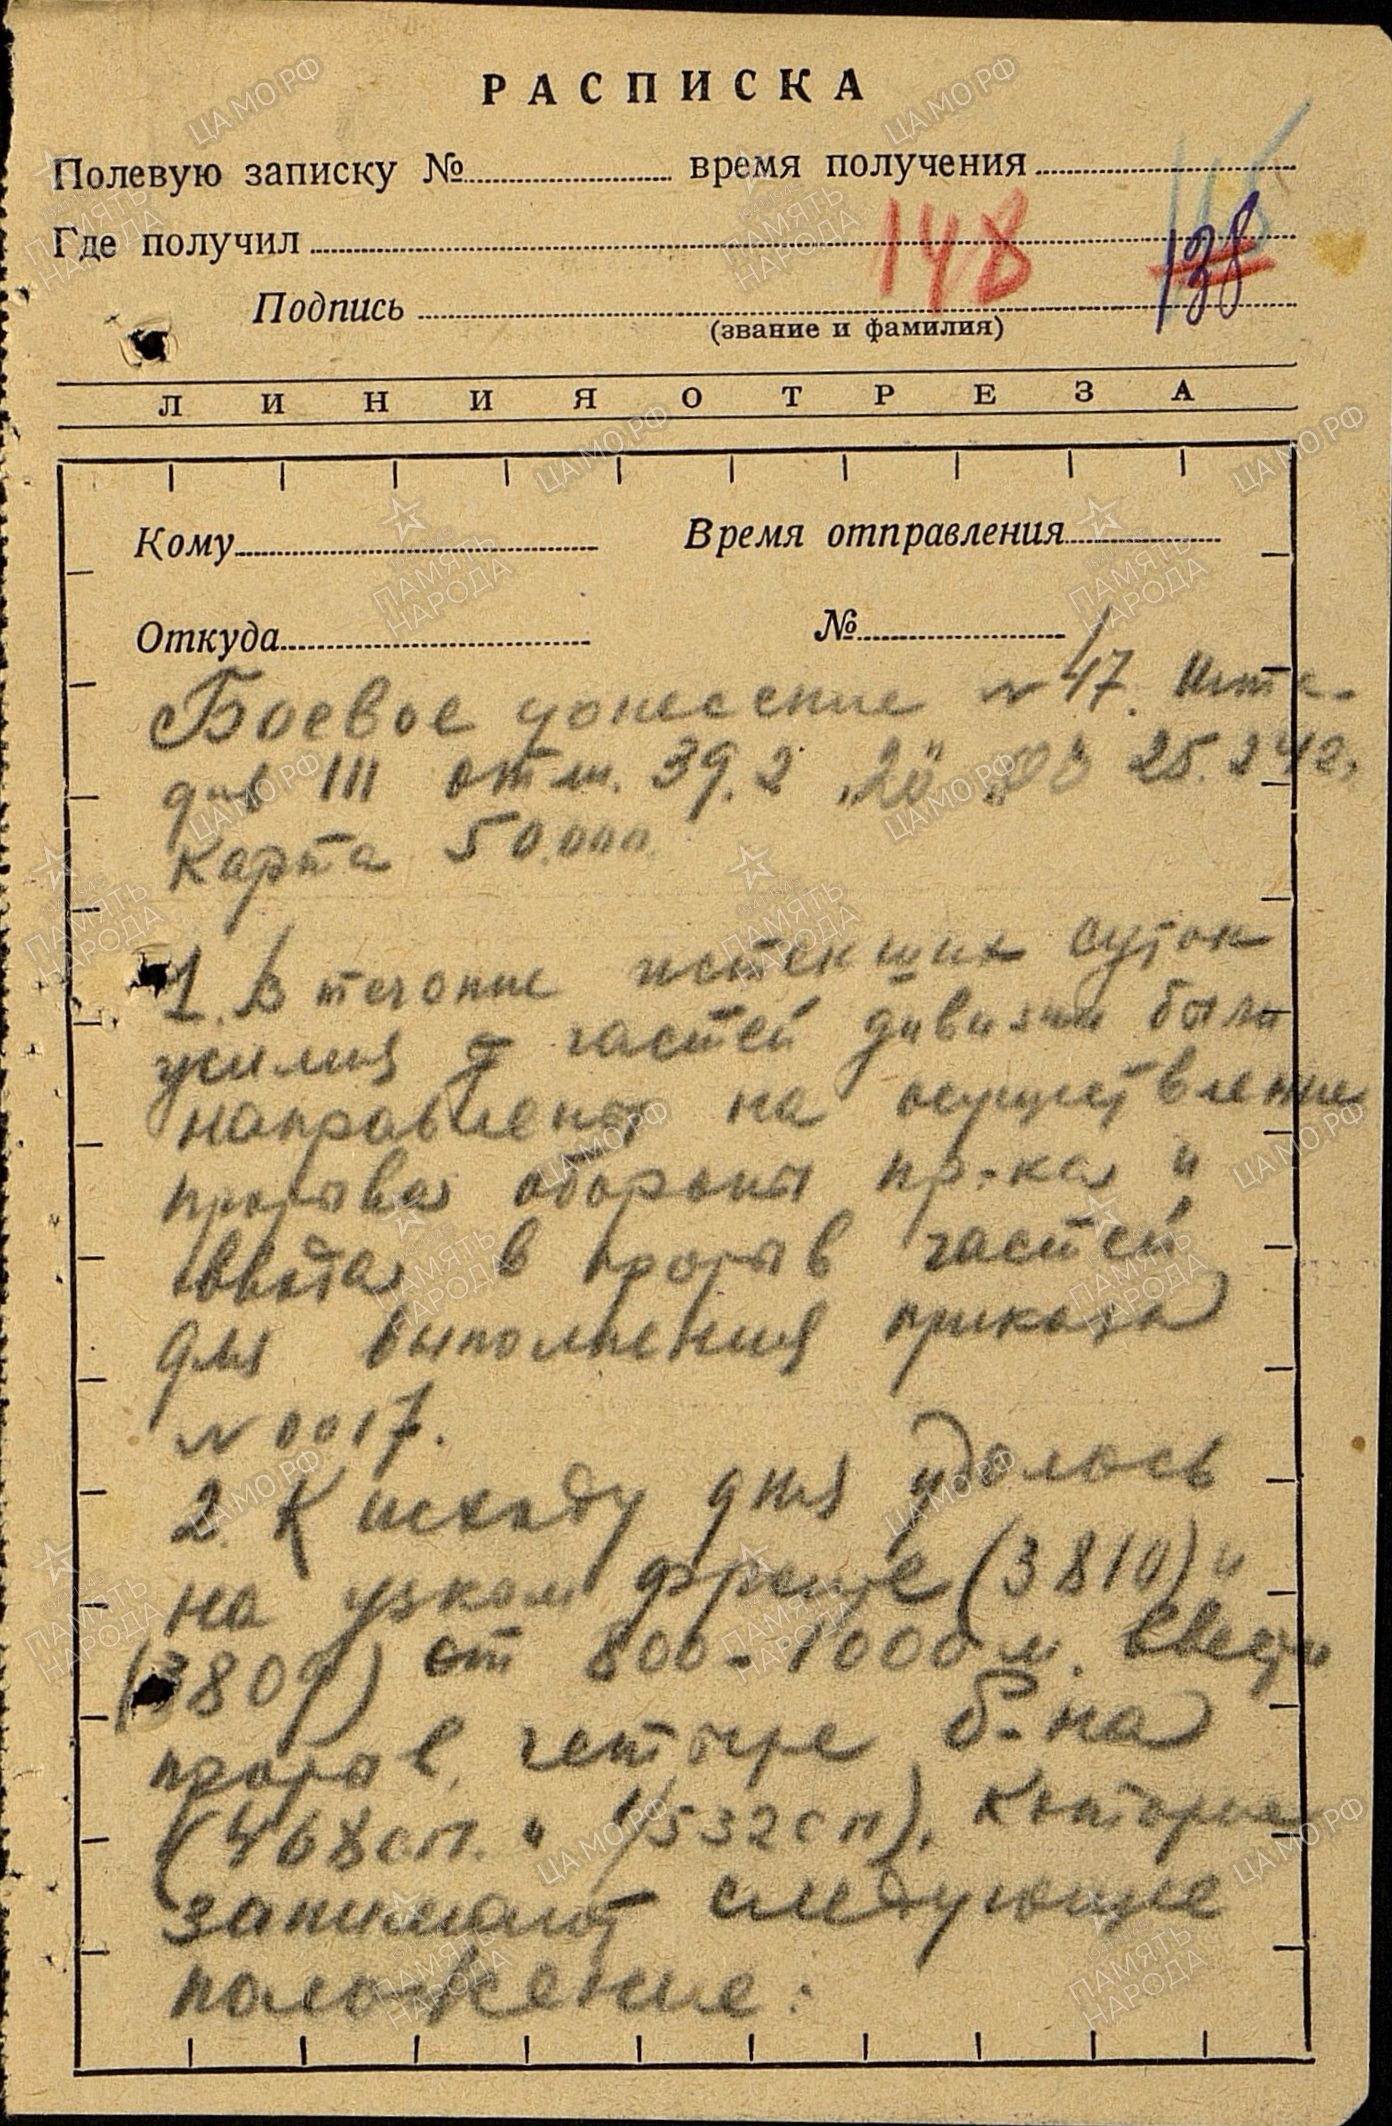 РАСПИСКА
Полевую записку № время получения
Где получил
148
138
Подпись
(звание и фамилия)
ЛИНИЯ ОТРЕЗА
Кому Время отправления
Откуда №
Боевое донесение № 47. Шта-
див 111 отм. 39.2 25.2 42г.
карта 50.000
1. В течение истекших суток
усилия частей дивизии были
направлены на осуществление
прорыва обороны пр-ка и
ввода в прорыв частей
для выполнения приказа
№ 0017.
2. К исходу дня удалось
на узком фронте (3810) и
(3809) от 800-1000 м. ввести
прорыв, четыре б-на
(468сп. и 1/532сп), которые
занимают следующее
положение: